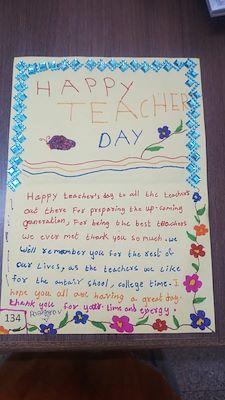 HAPPY
TEACHER
DAY
Happy teacher's day to all the teachers
out there For preparing the up-coming
generation, For being the best teachers
we ever met thank you so much. we
will remember you for the rest of
our lives, as the teachers we like
for the entair shool, college time. I
hope you all are having a great day.
thank you for your time and energy.
134